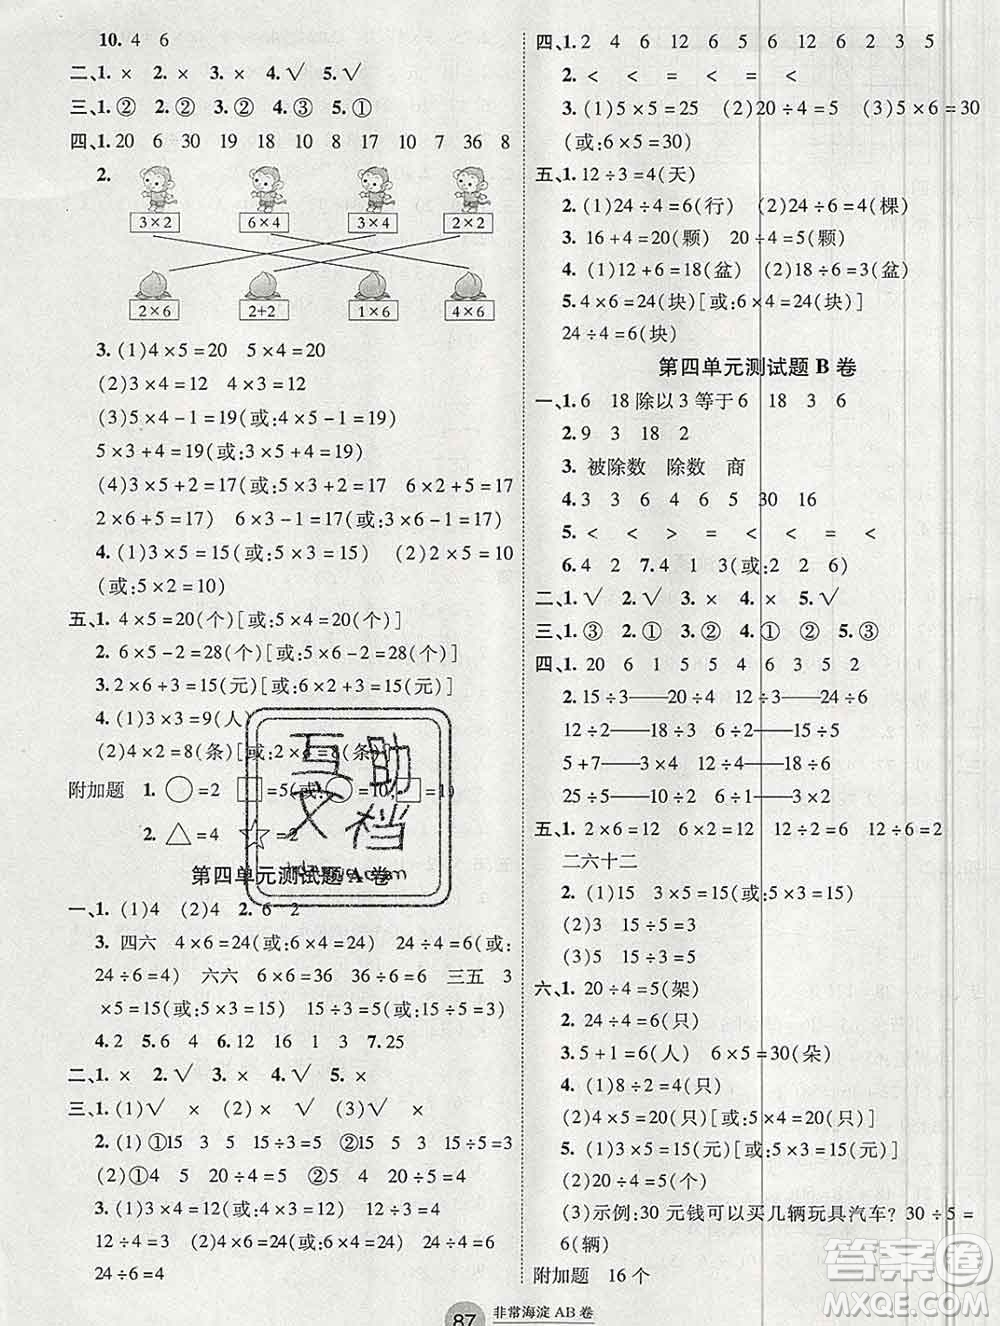 10. 4 6
二、1. × 2. × 3. × 4. √ 5. √
三、1. ② 2. ② 3. ② 4. ③ 5. ①
四、1. 20 6 30 19 18 10 17 10 7 36 8
2.
3×2 6×4 3×4 2×2
2×6 2+2 1×6 4×6
3. (1)4×5=20 5×4=20
(2)3×4=12 4×3=12
(3)5×4-1=19(或:4×5-1=19)
5×3+4=19(或:3×5+4=19)
(4)3×5+2=17(或:5×3+2=17) 6×2+5=17(或:
2×6+5=17) 6×3-1=17(或:3×6-1=17)
4. (1)3×5=15(或:5×3=15) (2)2×5=10
(或:5×2=10)
五、1. 4×5=20(个)[或:5×4=20(个)]
2. 6×5-2=28(个)[或:5×6-2=28(个)]
3. 2×6+3=15(元)[或:6×2+3=15(元)]
4. (1)3×3=9(人)
(2)4×2=8(条)[或:2×4=8(条)]
附加题 1. ○=2 □=5(或:○=10,□=1)
2. △=4 ☆=2
互助
文档
第四单元测试题 A 卷
一、1. (1)4 (2)4 2. 6 2
3. 四六 4×6=24(或:6×4=24) 24÷4=6(或:
24÷6=4) 六六 6×6=36 36÷6=6 三五 3
×5=15(或:5×3=15) 15÷3=5(或:15÷5=3)
4. 2 5. 6 4 6. 12 16 1 3 7. 25
二、1. × 2. √ 3. × 4. × 5. √
三、1. (1)√ × (2)× √ (3)√ ×
2. (1)①15 3 5 15÷3=5 ②15 5 3 15÷5=3
(2)①4 5 20÷4=5 ②5 4 20÷5=4
3. (1)3×4=12(或:4×3=12) 12÷3=4(或:
12÷4=3) (2)4×6=24(或:6×4=24) 24÷4=6
24÷6=4
四、1. 2 4 6 12 6 12 6 2 3 5
2. < < = < = <
3. (1)5×5=25 (2)20÷4=5 (3)5×6=30
(或:6×5=30)
五、1. 12÷3=4(天)
2. (1)24÷4=6(行) (2)24÷6=4(棵)
3. 16+4=20(颗) 20÷4=5(颗)
4. (1)12+6=18(盆) (2)18÷3=6(盆)
5. 4×6=24(块)[或:6×4=24(块)]
24÷4=6(块)
第四单元测试题 B 卷
一、1. 6 18 除以 3 等于 6 18 3 6
2. 9 3 18 2
3. 被除数 除数 商
4. 3 3 6 4 6 5 30 16
5. < < > = < <
6. 4 2 7. 4 1 3(或:2 2 6)
二、1. √ 2. √ 3. × 4. × 5. √
三、1. ③ 2. ① 3. ② 4. ① ② 5. ③
四、1. 20 6 1 5 5 4 6 3 5 2
2. 15÷3——20÷4 12÷3——24÷6
12÷6——18÷9 30÷5——24÷4
3. 12÷4——15÷5 2×2——24÷6
25÷5——20÷4 6÷2——1×3
6÷1——3×2
五、1. 2×6=12 6×2=12 12÷2=6 12÷6=2
二六十二
2. (1)15 3×5=15 5×3=15
(2)3 15÷5=3
(3)5 15÷3=5
六、1. 20÷4=5(架)
2. 24÷4=6(只)
3. 5+1=6(人) 6×5=30(朵)
4. (1)8÷2=4(只)
(2)4×5=20(只)[或:5×4=20(只)]
5. (1)3×5=15(元)[或:5×3=15(元)]
(2)20÷4=5(个)
(3)示例:30 元钱可以买几辆玩具汽车? 30÷5=
6(辆)
附加题 16 个
87 非常海淀 AB 卷
答案圈
MXQE.COM